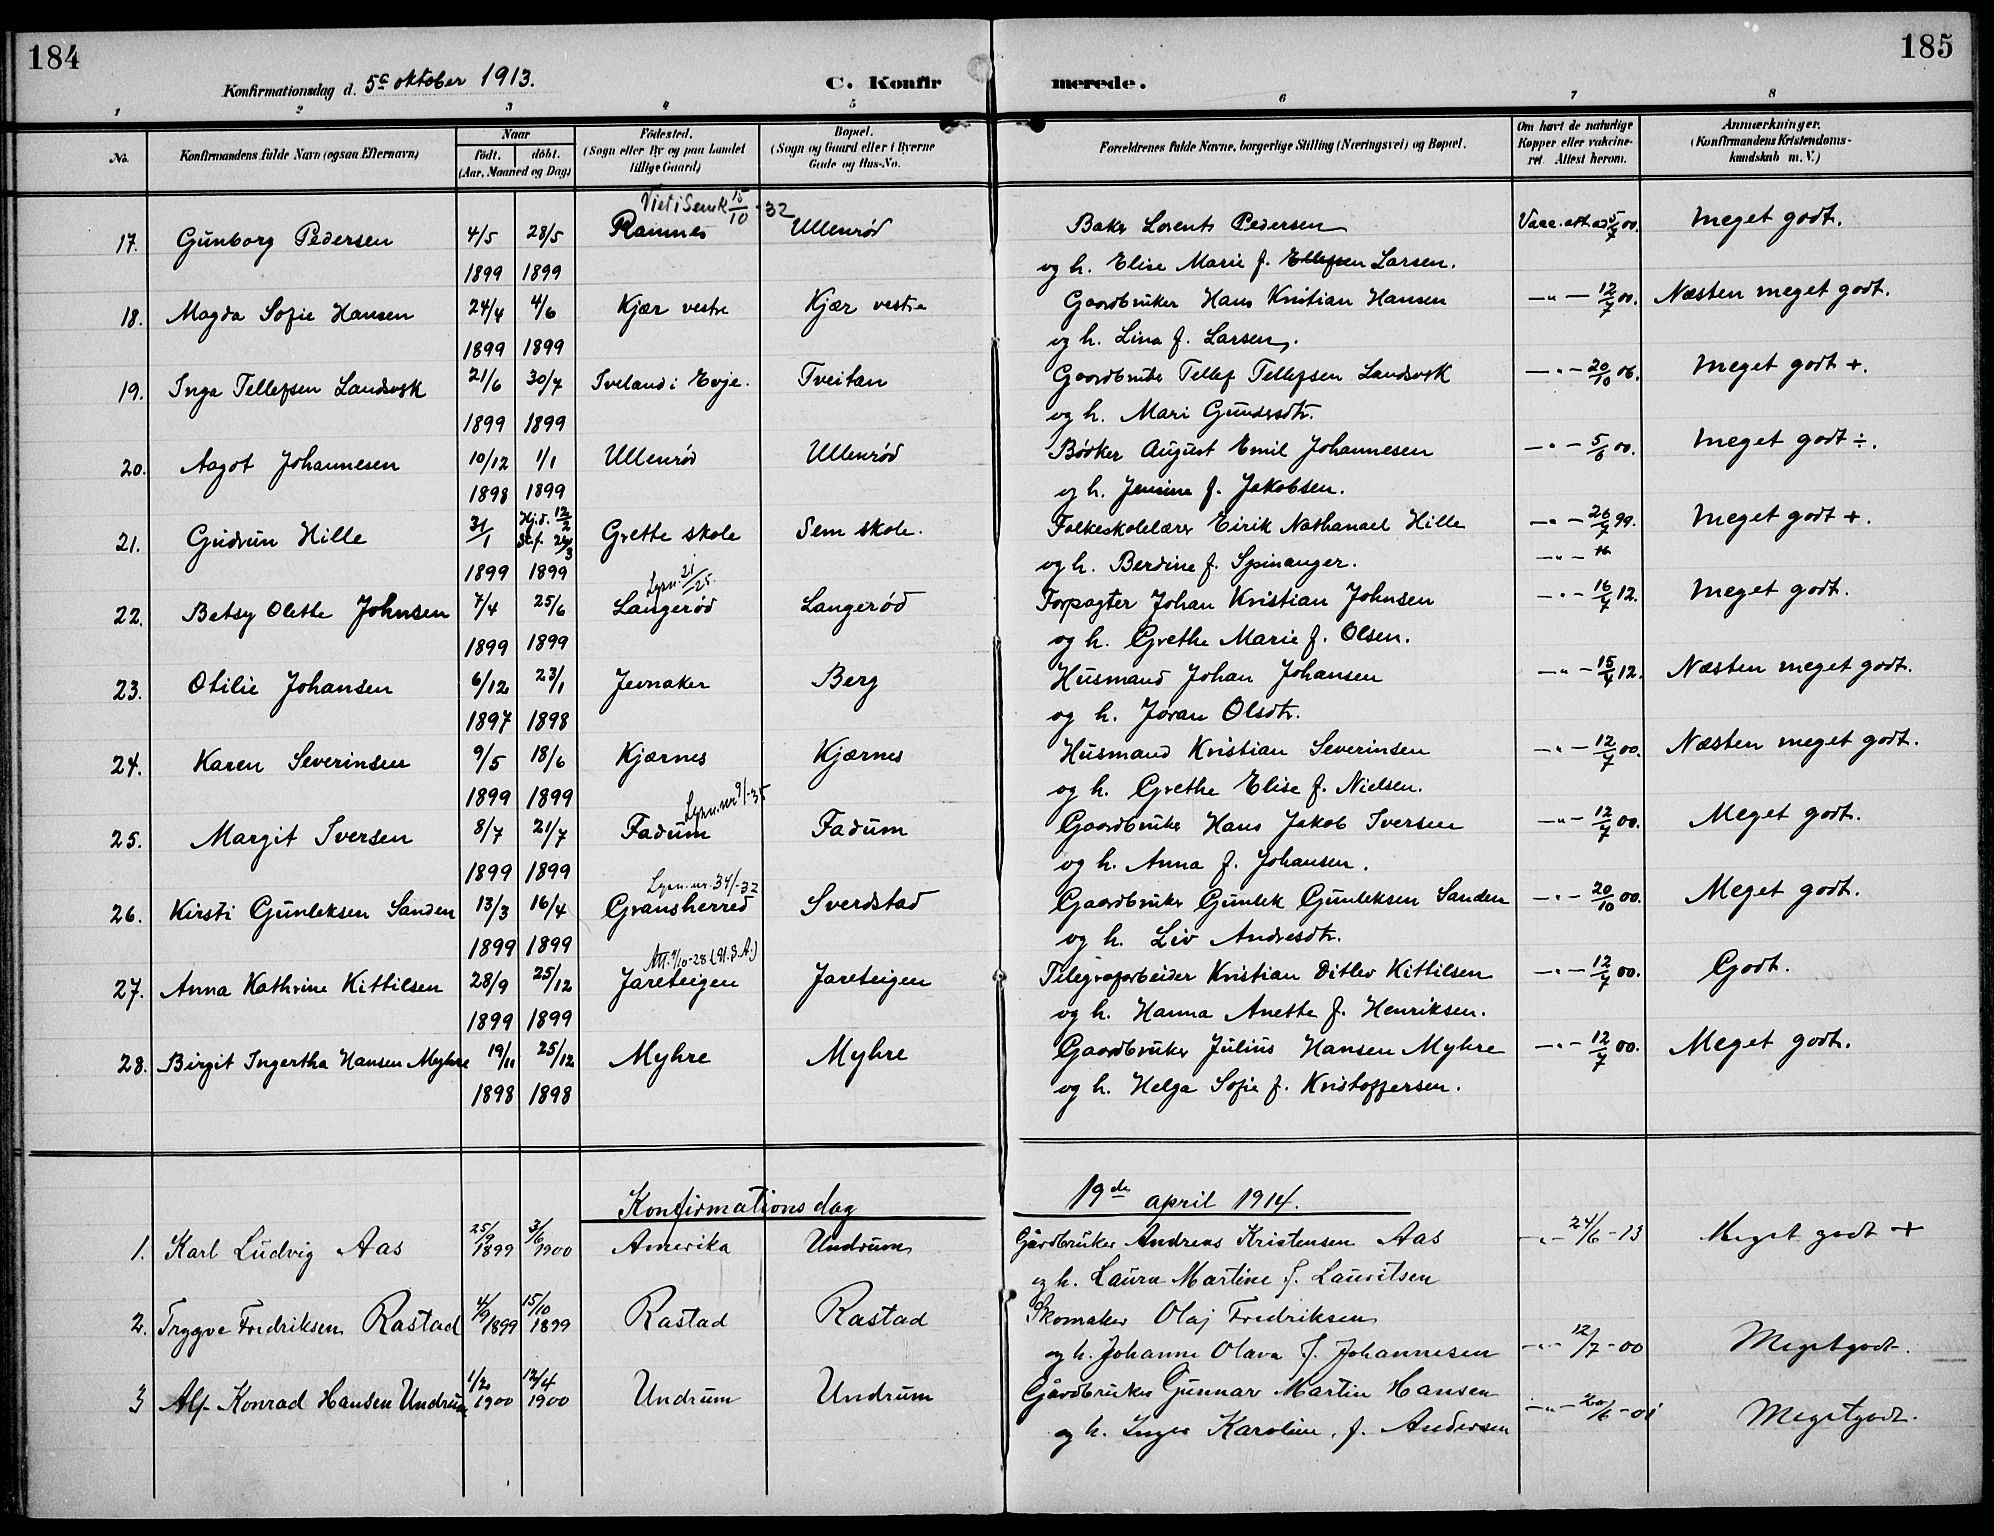 184
185
Konfirmationsdag d. 5te oktober 1913.
C. Konfirmerede.
1 2 3 4 5 6 7 8
No. Konfirmandens fulde Navn (ogsaa Efternavn) Naar født. døbt. (Aar, Maaned og Dag) Fødested. (Sogn eller By og paa Landet tillige Gaard) Bopæl. (Sogn og Gaard eller i Byerne Gade og Hus-No. Forældrenes fulde Navne, borgerlige Stilling (Næringsvei) og Bopæl. Om havt de naturlige Kopper eller vakcineret. Attest herom. Anmærkninger. (Konfirmandens Kristendomskundskab m. V.)
Viet i Sem k 15/10-32
17. Gunborg Pedersen 4/5 28/5 Ramnes Ullenrød Baker Lorents Pedersen Vacc. att. ad 5/7 00. Meget godt.
1899 1899 og h. Elise Marie f. Ellefsen Larsen.
18. Magda Sofie Hansen 24/4 4/6 Kjær vestre Kjær vestre Gaardbruker Hans Kristian Hansen —"— 12/7 00. Næsten meget godt.
1899 1899 og h. Lina f. Larsen.
19. Inga Tellefsen Landsvsk 21/6 30/7 Iveland i Evje. Tveitan Gaardbruker Tellef Tellefsen Landsvsk —"— 20/10 06. Meget godt +.
1899 1899 og h. Mari Gundersdtr.
20. Aagot Johannesen 10/12 1/1 Ullenrød Ullenrød Bødker August Emil Johannesen —"— 5/6 00. Meget godt ÷.
1898 1899 og h. Jensine f. Jakobsen.
21. Gudrun Hille 31/1 Hj.d. 12/2 Stf. 26/3 Grette skole Sem skole. Folkeskolelærer Eirik Nathanael Hille —"— 26/7 99. Meget godt +.
1899 1899 og h. Berdine f. Spinanger. —"—
Lysn. 21/25.
22. Betsy Olette Johnsen 7/4 25/6 Langerød Langerød Forpagter Johan Kristian Johnsen —"— 16/7 12. Meget godt.
1899 1899 og h. Grethe Marie f. Olsen.
23. Otilie Johansen 6/12 23/1 Jevnaker Berg Husmand Johan Johansen —"— 15/4 12. Næsten meget godt.
1897 1898 og h. Joran Olsdtr.
24. Karen Severinsen 9/5 18/6 Kjærnes Kjærnes Husmand Kristian Severinsen —"— 12/7 00. Næsten meget godt.
1899 1899 og h. Grethe Elise f. Nielsen.
Lysn. nr. 9/-35
25. Margit Iversen 8/7 21/7 Fadum Fadum Gaardbruker Hans Jakob Iversen —"— 12/7 00. Meget godt.
1899 1899 og h. Anna f. Johansen.
Lysn. nr. 34/-32
26. Kirsti Gunleksen Sanden 13/3 16/4 Gransherred Sverdstad Gaardbruker Gunlek Gunleksen Sanden —"— 20/10 00. Meget godt.
1899 1899 og h. Liv Andresdtr.
27. Anna Kathrine Kittilsen 28/9 25/12 Jareteigen Jareteigen Telegrafarbeider Kristian Ditlev Kittilsen —"— 12/7 00. Godt.
1899 1899 og h. Hanna Anette f. Henriksen.
28. Birgit Ingertha Hansen Myhre 19/11 25/12 Myhre Myhre Gaardbruker Julius Hansen Myhre —"— 12/7 00. Meget godt.
1898 1898 og h. Helga Sofie f. Kristoffersen.
Konfirmationsdag 19de april 1914.
1. Karl Ludvig Aas 25/9 1899 3/6 1900 Amerika Undrum Gårdbruker Andreas Kristensen Aas —"— 24/6-13 Meget godt +
og h. Laura Martine f. Lauritsen
2. Trygve Fredriksen Rastad 4/9 1899 15/10 1899 Rastad Rastad Skomaker Olaf Fredriksen
og h. Johanne Olava f. Johannesen —"— 12/7-00 Meget godt.
3 Alf Konrad Hansen Undrum 1/2 1900 12/4 1900 Undrum Undrum Gårdbruker Gunnar Martin Hansen
og h. Inga Karoline f. Andersen —"— 20/6-01 Meget godt.